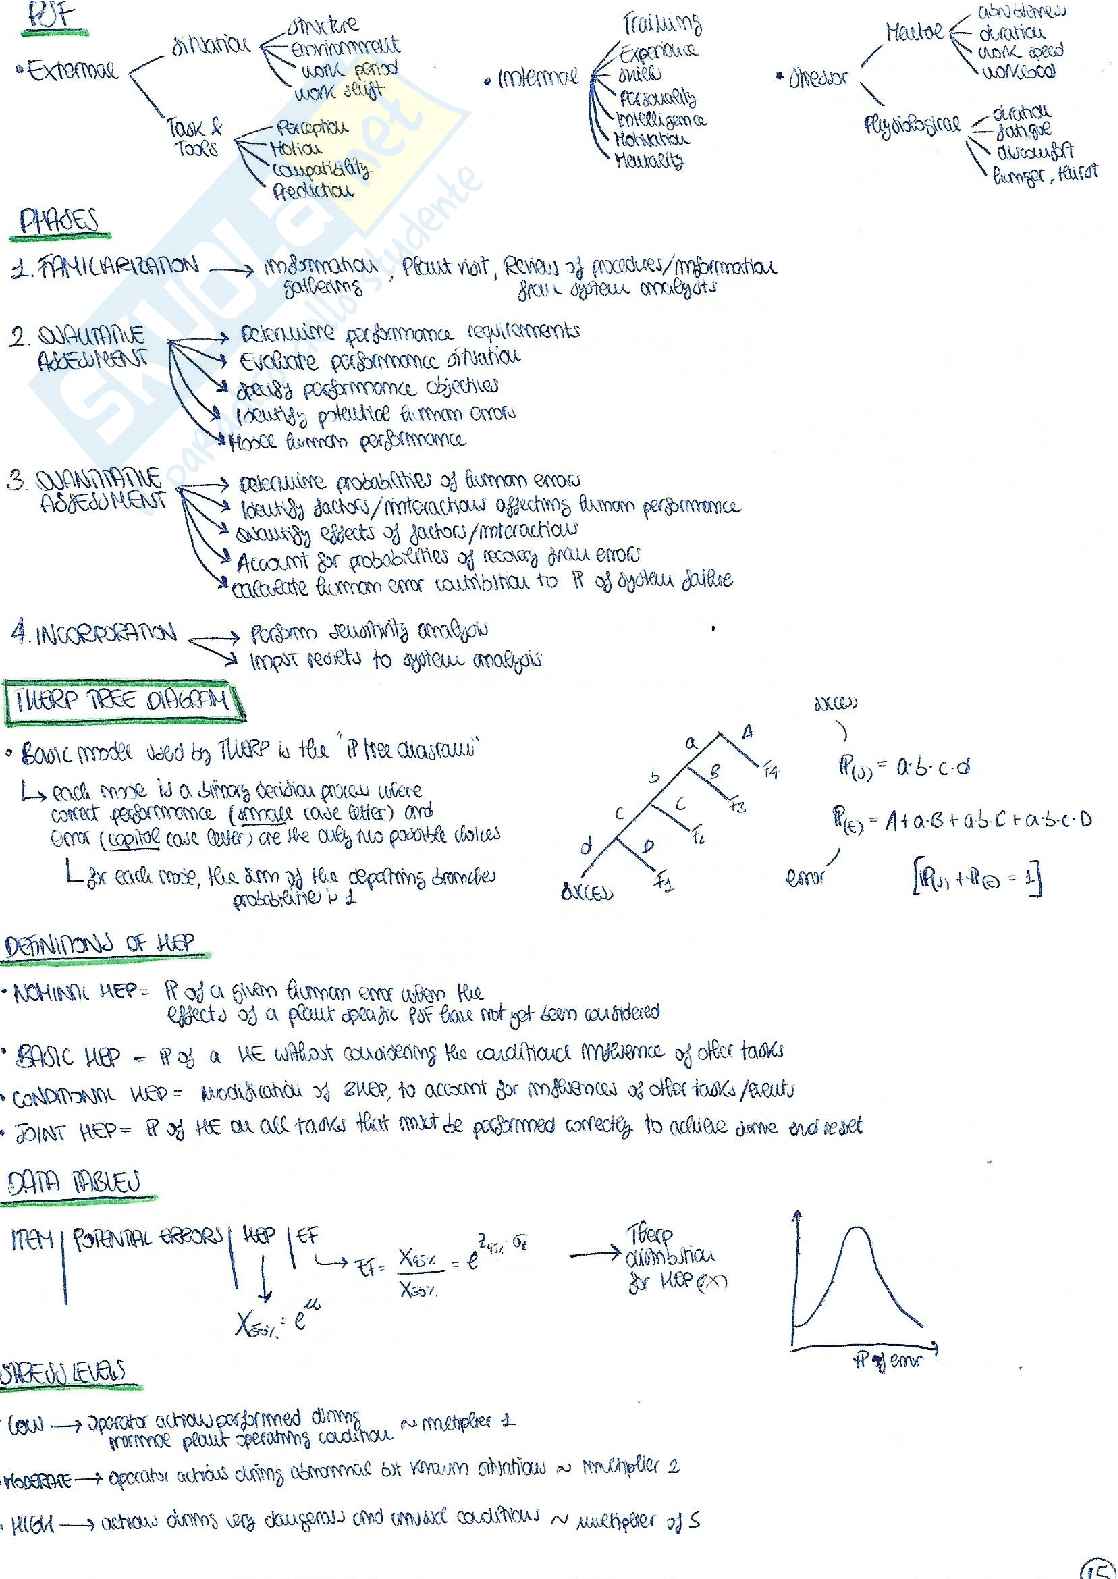 PSF
• External
Situation
structure
environment
work period
work shift
Task &
Tools
Perception
Motion
compatibility
Prediction
• Internal
Training
Experience
skills
Personality
Intelligence
Motivation
Mentality
• stressor
Mental
duration
work speed
workload
Physiological
duration
fatigue
discomfort
hunger, thirst
PHASES
1. FAMILIARIZATION → information gathering, Plant visit, Review of procedures/information from system analysts
2. QUALITATIVE ASSESSMENT
→ Determine performance requirements
→ Evaluate performance situation
→ specify performance objectives
→ Identify potential human errors
→ Model human performance
3. QUANTITATIVE ASSESSMENT
→ Determine probabilities of human errors
→ Identify factors/interactions affecting human performance
→ Quantify effects of factors/interactions
→ Account for probabilities of recovery from errors
→ calculate human error contribution to P of system failure
4. INCORPORATION
→ Perform sensitivity analysis
→ Input results to system analysis
THERP TREE DIAGRAM
• Basic model used by THERP is the "P tree diagram"
↳ each node is a binary decision process where
correct performance (small case letter) and
error (capital case letter) are the only two possible choices
for each node, the sum of the departing branches
probabilities is 1
a A
b B F4
c C F3
d D F2
success F1
success
P(s) = a·b·c·d
P(E) = A+a·B+a·b·C+a·b·c·D
error
[P(s) + P(E) = 1]
DEFINITIONS OF HEP
• NOMINAL HEP = P of a given human error when the
effects of a plant specific PSF have not yet been considered
• BASIC HEP = P of a HE without considering the conditional influence of other tasks
• CONDITIONAL HEP = modification of BHEP, to account for influences of other tasks/events
• JOINT HEP = P of HE on all tasks that must be performed correctly to achieve some end result
DATA TABLES
ITEM | POTENTIAL ERRORS | HEP | EF
EF = X95% / X50% = e^(z95% σz)
X50% = e^μ
→ Therp
distribution
for HEP (X)
P of error
STRESS LEVELS
• LOW → operator action performed during
normal plant operating condition ~ multiplier 1
• MODERATE → operator actions during abnormal but known situations ~ multiplier 2
• HIGH → actions during very dangerous and unusual conditions ~ multiplier of 5
15
SKUOLA.net